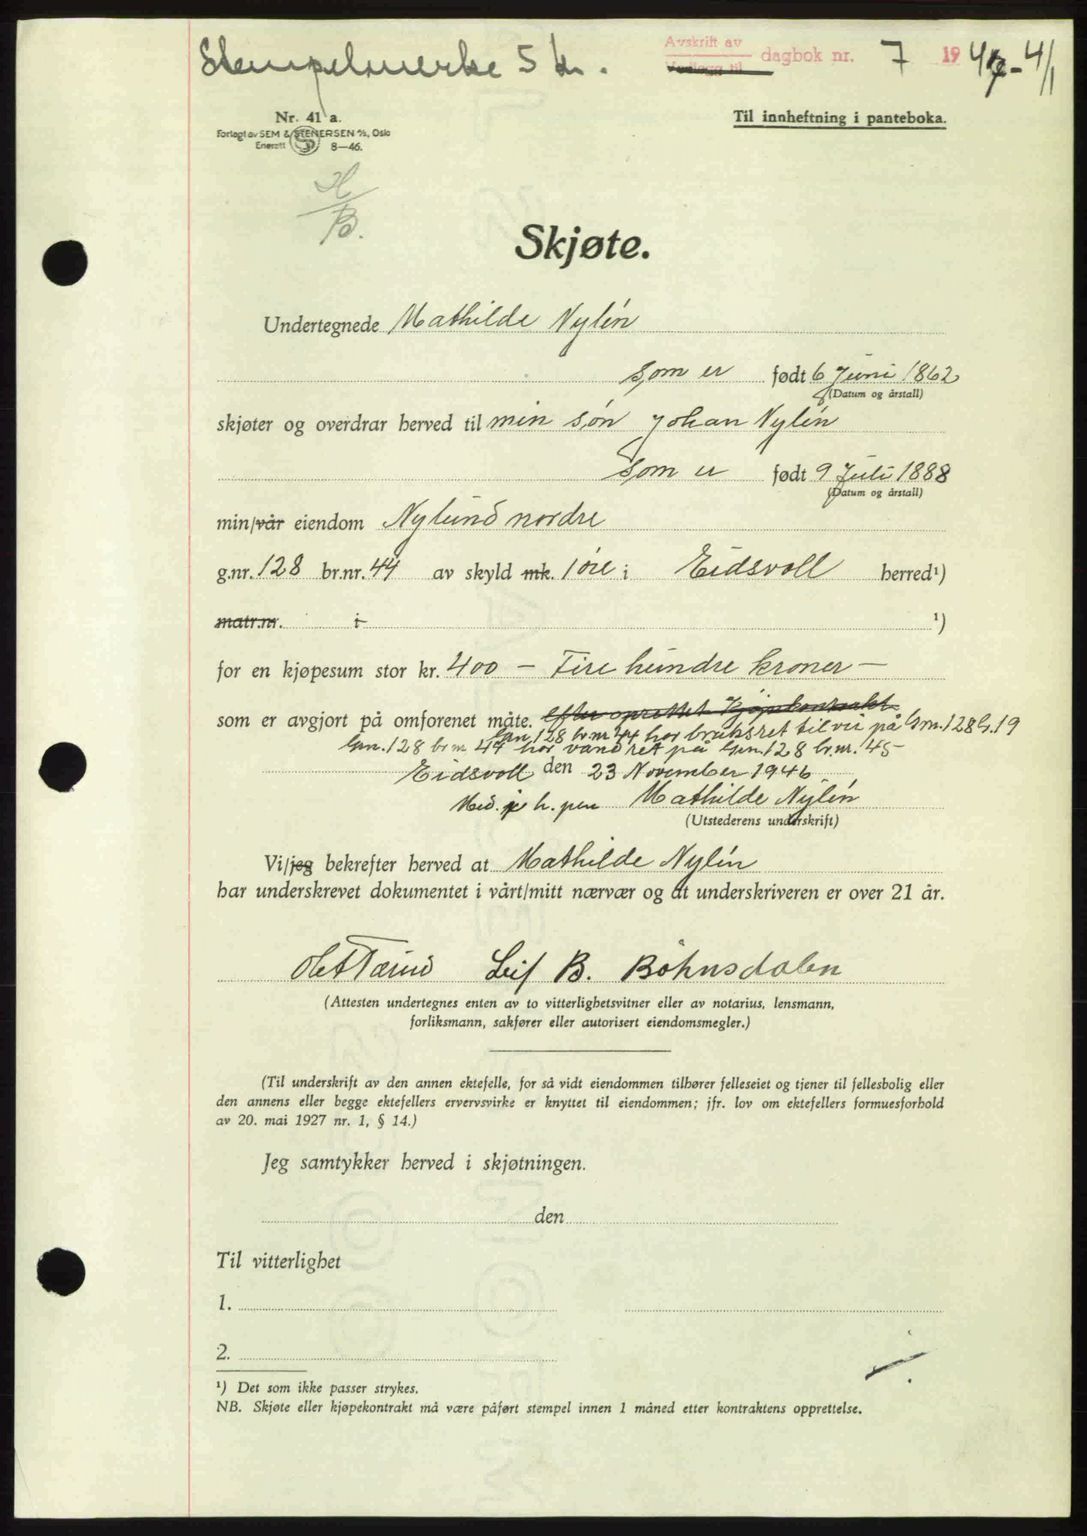 Stempelmerke 5 kr.
Avskrift av
Vedlegg til
dagbok nr. 7 1947 - 4/1
Nr. 41 a.
Forlagt av SEM & STENERSEN A/S, Oslo
Enerett 8—46.
Til innheftning i panteboka.
H/B.
Skjøte.
Undertegnede Mathilde Nylén
som er født 6 Juni 1862
(Datum og årstall)
skjøter og overdrar herved til min søn Johan Nylén
som er født 9 Juli 1888
(Datum og årstall)
min/vår eiendom Nylund nordre
g.nr. 128 br.nr. 44 av skyld mk. 1 øre i Eidsvoll herred¹)
matr.nr. i ¹)
for en kjøpesum stor kr. 400 — Fire hundre kroner —
som er avgjort på omforenet måte. Efter oprettet kjøpekontrakt
Gn. 128 br.nr. 44 har bruksret til vei på Gn. 128 b. 19
Gn. 128 br nr 44 har vandret på Gn. 128 br.nr. 45
Eidsvoll den 23 November 1946
Med. h. pen Mathilde Nylén
(Utstederens underskrift)
Vi/jeg bekrefter herved at Mathilde Nylén
har underskrevet dokumentet i vårt/mitt nærvær og at underskriveren er over 21 år.
Leif B. Böhnsdalen
(Attesten undertegnes enten av to vitterlighetsvitner eller av notarius, lensmann,
forliksmann, sakfører eller autorisert eiendomsmegler.)
(Til underskrift av den annen ektefelle, for så vidt eiendommen tilhører felleseiet og tjener til fellesbolig eller
den annens eller begge ektefellers ervervsvirke er knyttet til eiendommen; jfr. lov om ektefellers formuesforhold
av 20. mai 1927 nr. 1, § 14.)
Jeg samtykker herved i skjøtningen.
den
Til vitterlighet
1.
2.
¹) Det som ikke passer strykes.
NB. Skjøte eller kjøpekontrakt må være påført stempel innen 1 måned etter kontraktens opprettelse.